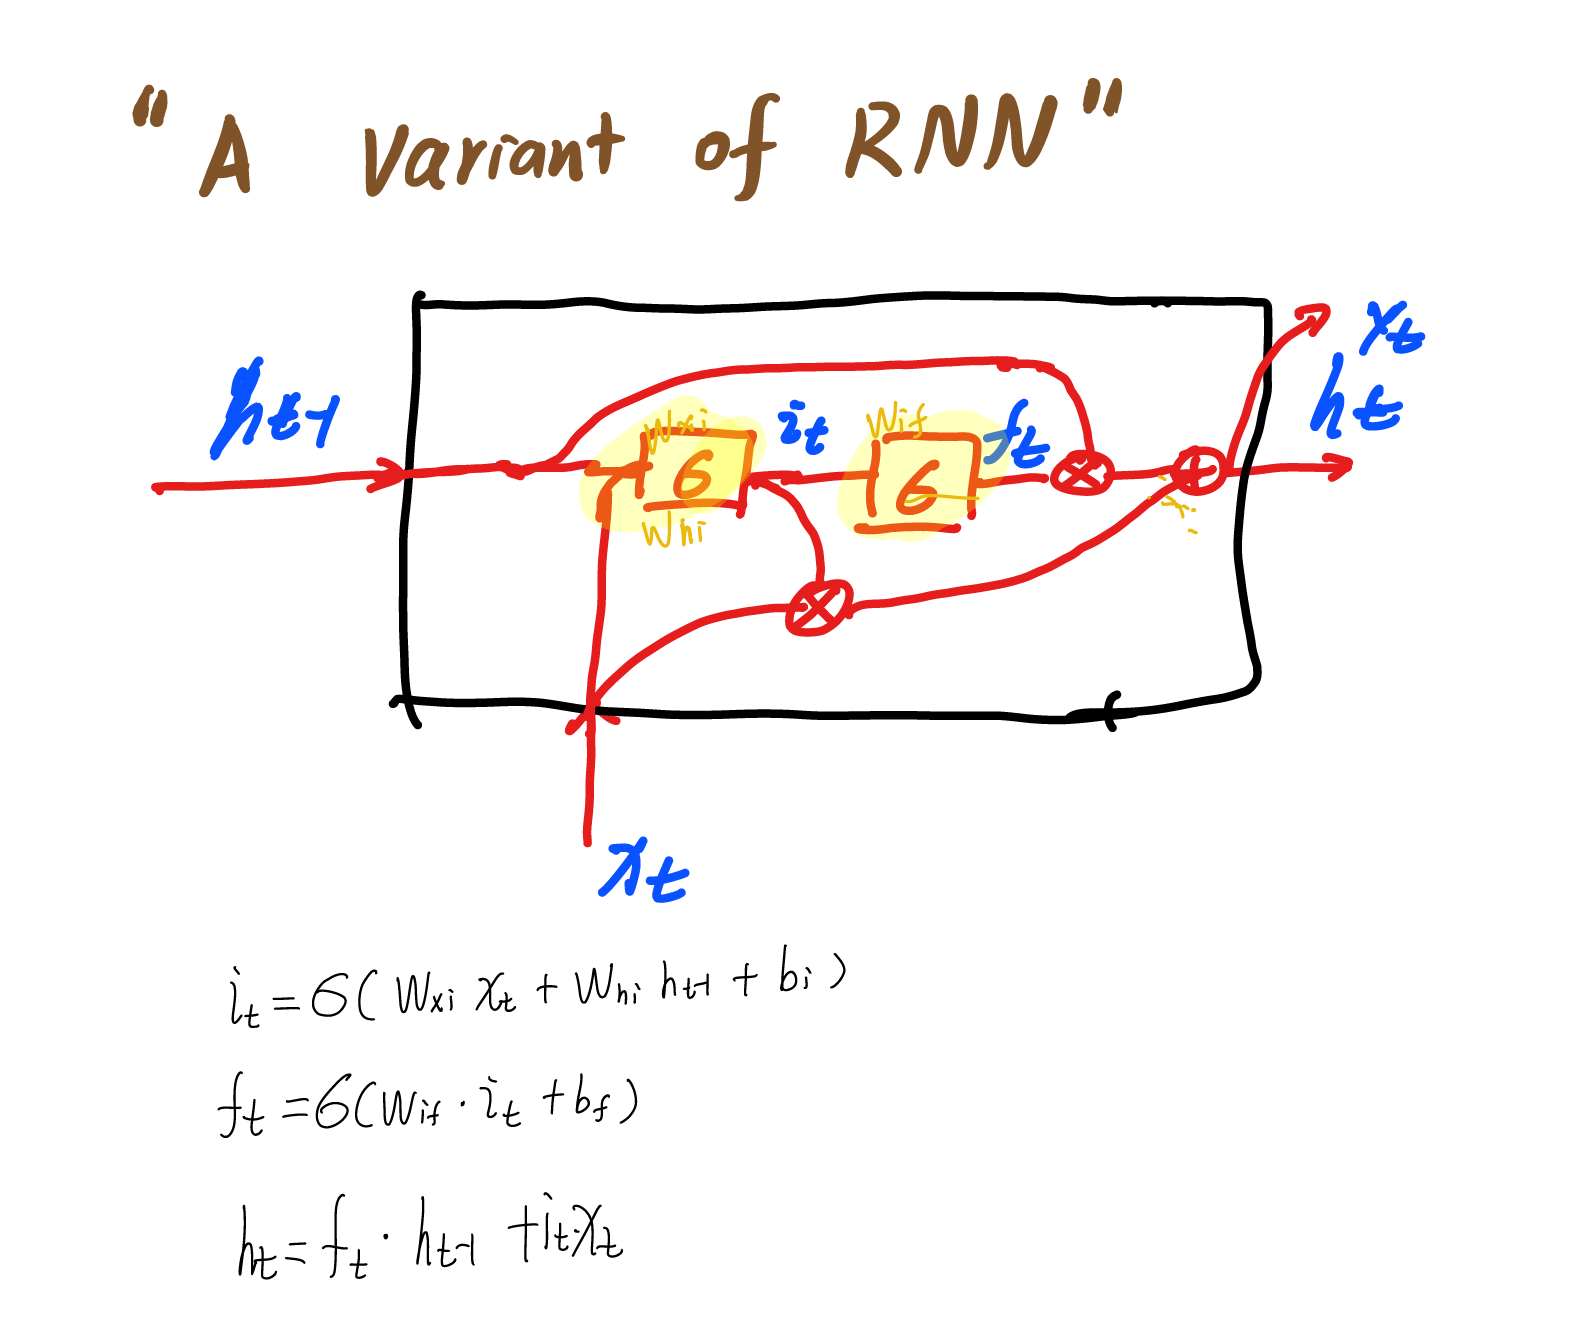 "A Variant of RNN"
x_t
h_{t-1}
h_t
W_{xi}
i_t
W_{if}
f_t
6
6
W_{hi}
x_t
i_t = 6( W_{xi} x_t + W_{hi} h_{t-1} + b_i )
f_t = 6( W_{if} · i_t + b_f )
h_t = f_t · h_{t-1} + i_t · x_t